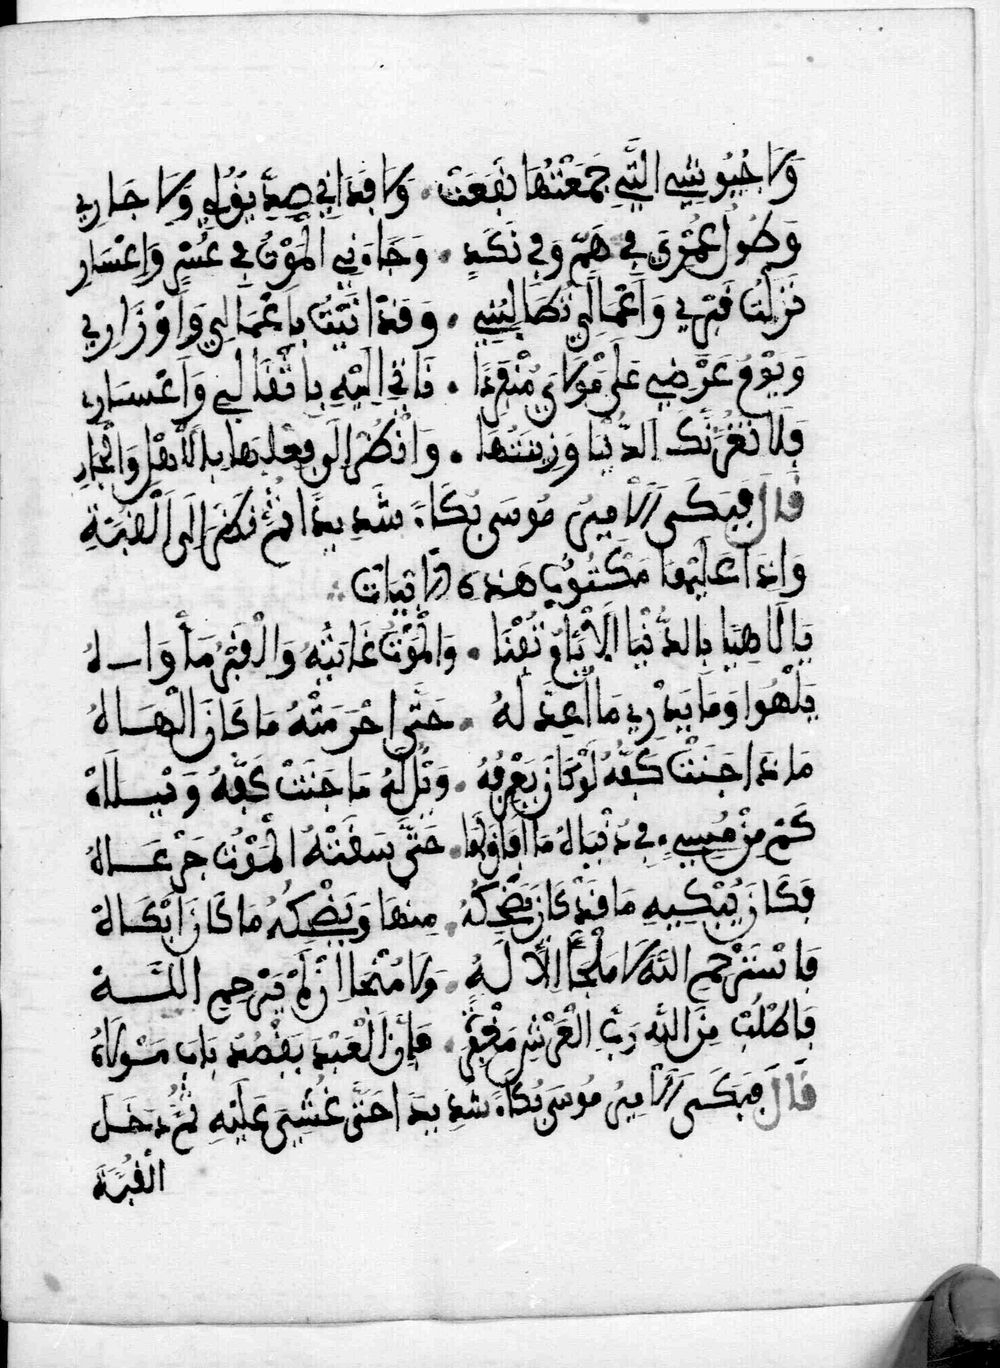 وَلَا جُيُوشِي الَّتِي جَمَعْتُهَا نَفَعَتْ . وَلَا فَدَانِي صِدِّيقُ لِي وَلَا جَارِي
وَطُولُ عُمْرِي فِي هَمٍّ وَفِي نَكَدٍ . وَجَاءَنِي الْمَوْتُ فِي عُسْرٍ وَإِعْسَارِ
نَزَلْتُ قَبْرِي وَأَعْمَالِي تُطَالِبُنِي . وَقَدْ اتَيْتُ بِأَعْمَالِي وَأَوْزَارِي
وَيَوْمُ عَرْضِي عَلَى مَوْلَايَ مُنْفَرِدًا . فَاتِي إِلَيْهِ بِاثْقَالِي وَأَعْسَارِ
فَلَا تَغُرَّنَّكَ الدُّنْيَا وَزِينَتُهَا . وَانْظُرْ إِلَى فِعْلِهَا بِالْأَهْلِ وَالْجَارِ
قَالَ فَبَكَى الْأَمِيرُ مُوسَى بُكَاءً شَدِيدًا ثُمَّ نَظَرَ إِلَى الْقُبَّةِ
وَاِذَا عَلَيْهَا مَكْتُوبٌ هَذِهِ الْأَبْيَاتُ
يَا لَاهِيًا بِالدُّنْيَا وَالْمَوْتُ غَايَتُهُ وَالْقَبْرُ مَأْوَاهُ
يَلْهُوا وَمَا يَدْرِي مَا أُعِدَّ لَهُ . حَتَّى احْرَمَتْهُ مَا كَانَ الْهَاهُ
مَاذَا جَنَتْ كَفُّهُ لَوْ كَانَ يَعْرِفُهُ . وَيْلٌ لَهُ مَا جَنَتْ كَفُّهُ وَيْلَاهْ
كَمْ مِنْ مُسِيءٍ فِي دُنْيَاهُ مَا حَتَّى سَقَتْهُ الْمَوْتُ جَرْعَاهُ
فَكَانَ يُبْكِيهِ مَا قَدْ كَانَ يُضْحِكُهُ . مِنْهَا وَيُضْحِكُهُ مَا كَانَ أَبْكَاهُ
فَاسْتَرْحِمِ اللَّهَ لَا مَلْجَأً إِلَّا لَهُ . وَلَا مُنْجَا إِنْ لَمْ يَرْحَمِ اللَّهْ
فَاطْلُبْ مِنَ اللَّهِ رَبِّ الْعَرْشِ مَغْفِرَةً . فَإِنَّ الْعَبْدَ يَقْصُدُ بَابَ مَوْلَاهُ
قَالَ فَبَكَى الْأَمِيرُ مُوسَى بُكَاءً شَدِيدًا حَتَّى غُشِيَ عَلَيْهِ ثُمَّ دَخَلَ
الْقُبَّةَ